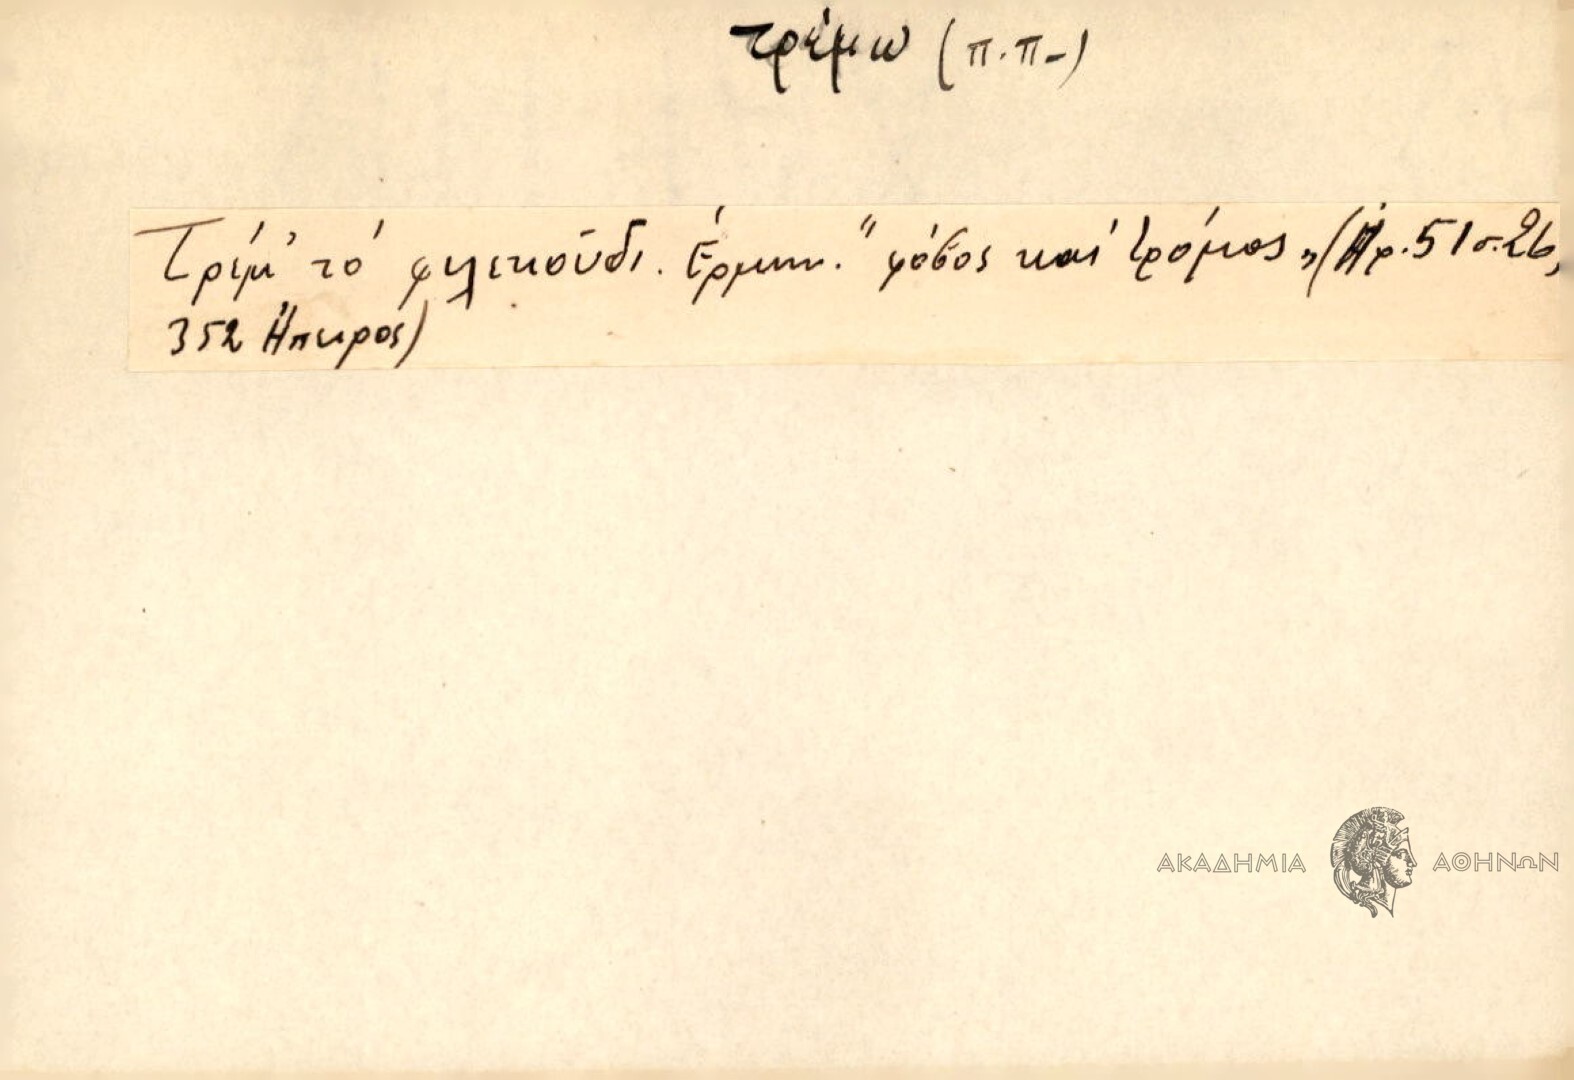 τρέμω (π.π-)
Τρέμ' τό φυλικούδι. Ἑρμην. "φόβος καί τρόμος„ (Ἀρ.51 σ.26,
352 Ἤπειρος)
ΑΚΑΔΗΜΙΑ ΑΘΗΝΩΝ